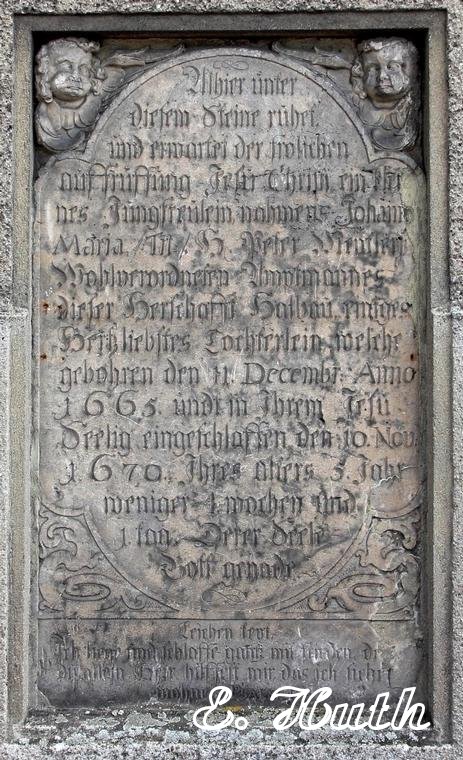 Alhier unter
diesem Steine ruhet
und erwartet der frolichen
aufferuffung Jesu Christi ein klei
nes Jungfreulein nahmens Johan
Maria /
Wohlverordneten Hauptmannes
dieser Herschafft Halbau eintges
Hertzliebstes Tochterlein welche
gebohren den 11. Decembr. Anno
1665. und in Ihrem Jesu
Seelig eingeschlaffen den 10. Nov.
1670. Ihres alters 5. Jahr
weniger 4. wochen und
1. tag. Derer Seele
Gott genade.
Leichen text.
Ich liege und schlaffe gantz mit frieden de
allein Herr hilffest mir das ich sicher
E. Huth